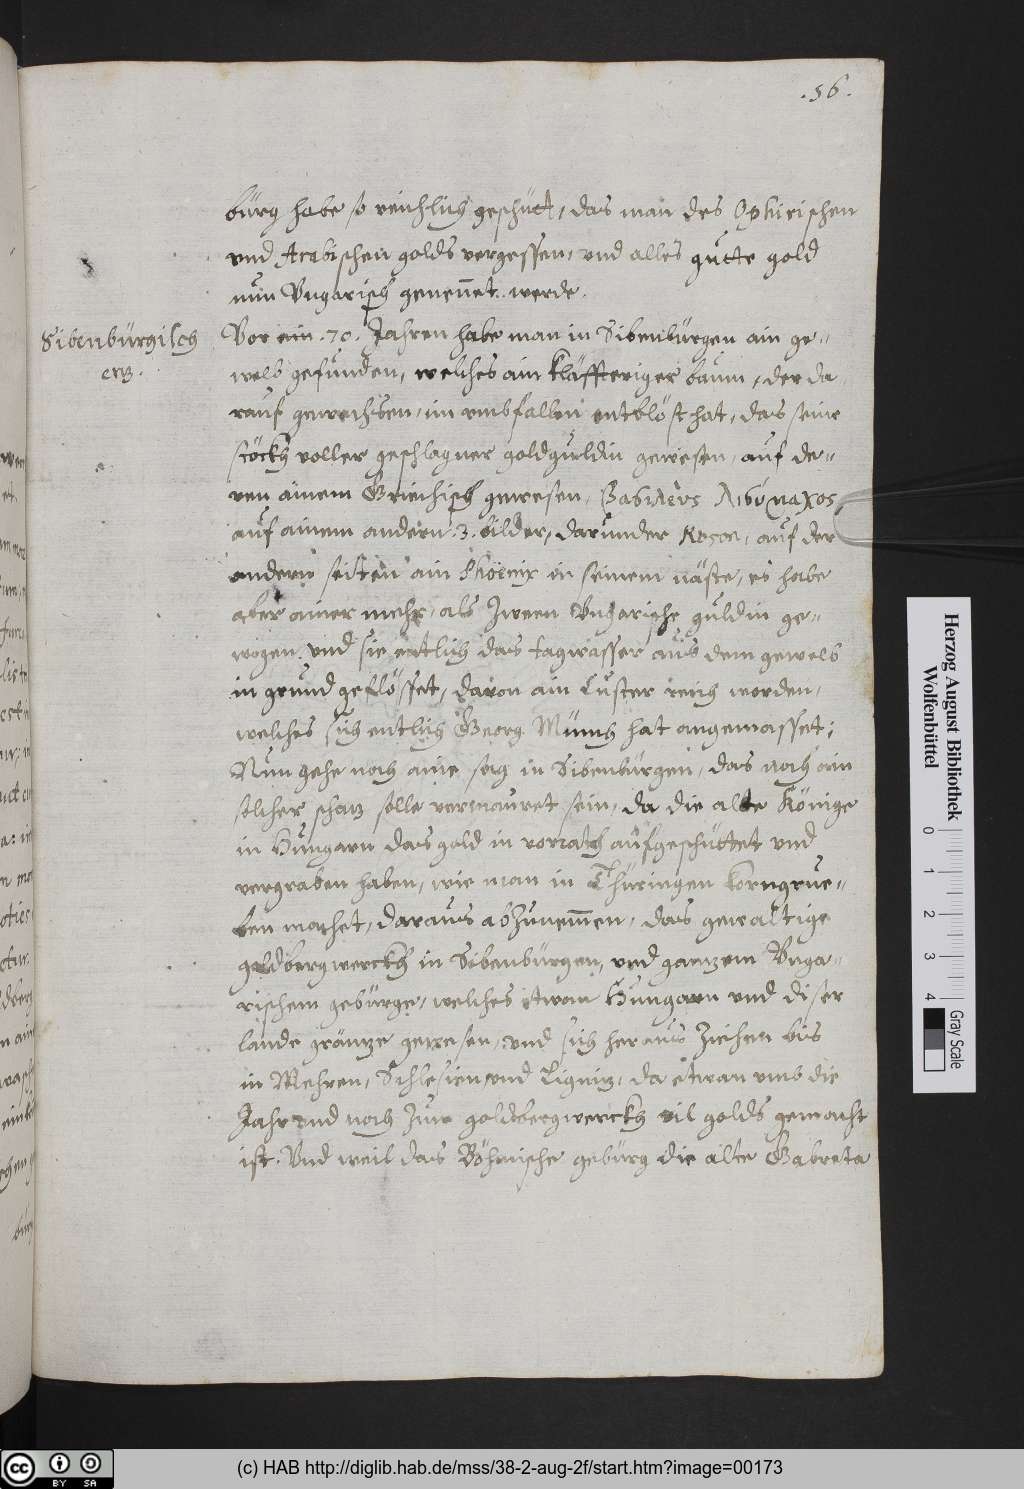 .56.
bürg habe so reichlich geschütt, das man des Ophirischen
vnd Arabischen golds vergessen, vnd alles gutte gold
nun Vngarisch genennet werde.
Sibenbürgisch
erz.
Vor ein .70. Jahren habe man in Sibenbürgen ain ge-
welb gefunden, welches ain kläffteriger baum, der da
rauf gewachsen, im vmbfallen entblöst hat, das seine
stöckh voller geschlagner goldguldin gewesen, auf de-
ren ainem Griechisch gewesen, Βασιλευς Λισυμαχος
auf ainem andern .3. bilder, darunder Κοσον, auf der
andern seitten ain Phoenix in seinem näste, es habe
aber ainer mehr, als zween Vngarische guldin ge-
wogen. vnd sie entlich das tagwasser aus dem gewelb
in grund geflösset, davon ain Custer reich worden,
welches sich entlich Georg Münch hat angemasset;
Nun gehe noch aine sag in Sibenbürgen, das noch ain
solcher schaz solle vermauret sein, da die alte Könige
in Hungarn das gold in vorrath aufgeschüttet vnd
vergraben haben, wie man in Thüringen korngrue-
ben machet, daraus abzunemmen, das gewaltige
goldbergwerckh in Sibenbürgen, vnd ganzem Vnga-
rischem gebürge, welches etwan Hungarn vnd diser
lande gränze gewesen, vnd sich heraus ziehen bis
in Mehren, Schlesien vnd Ligniz, da etwan vmb die
Jahr vnd noch zum goldbergwerckh vil golds gemacht
ist. Vnd weil das Böhmische gebürg die alte Gabreta
Herzog August Bibliothek
Wolfenbüttel
0 1 2 3 4
Gray Scale
cc BY SA
(c) HAB http://diglib.hab.de/mss/38-2-aug-2f/start.htm?image=00173